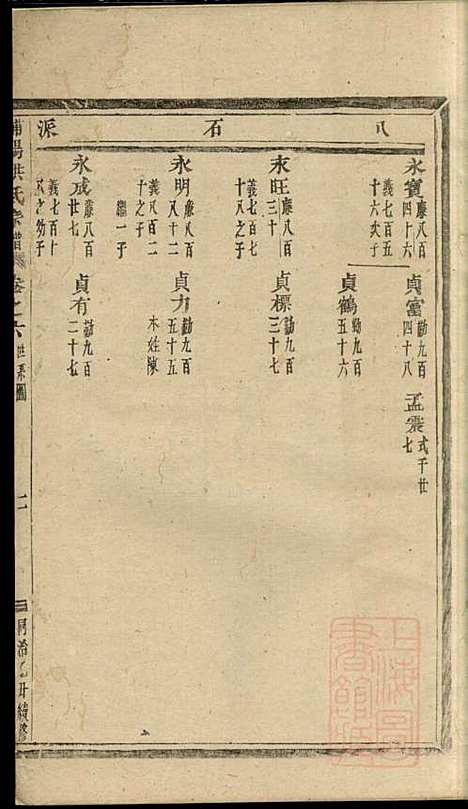 八石派
永寶 廉八百四十六 義七百五十六次子
貞富 勛九百四十八
孟震 式千廿七
貞鶴 勛九百五十六
永旺 廉八百三十 義七百七十八之子
貞標 勛九百三十七
永明 廉八百八十二 義八百二十之子 繼一子
貞力 勛九百五十五 木姓陳
永成 廉八百廿七 義七百十
貞有 勛九百二十七
浦陽洪氏宗譜 卷之六 世系圖
二
同治
續修
上海圖書館藏